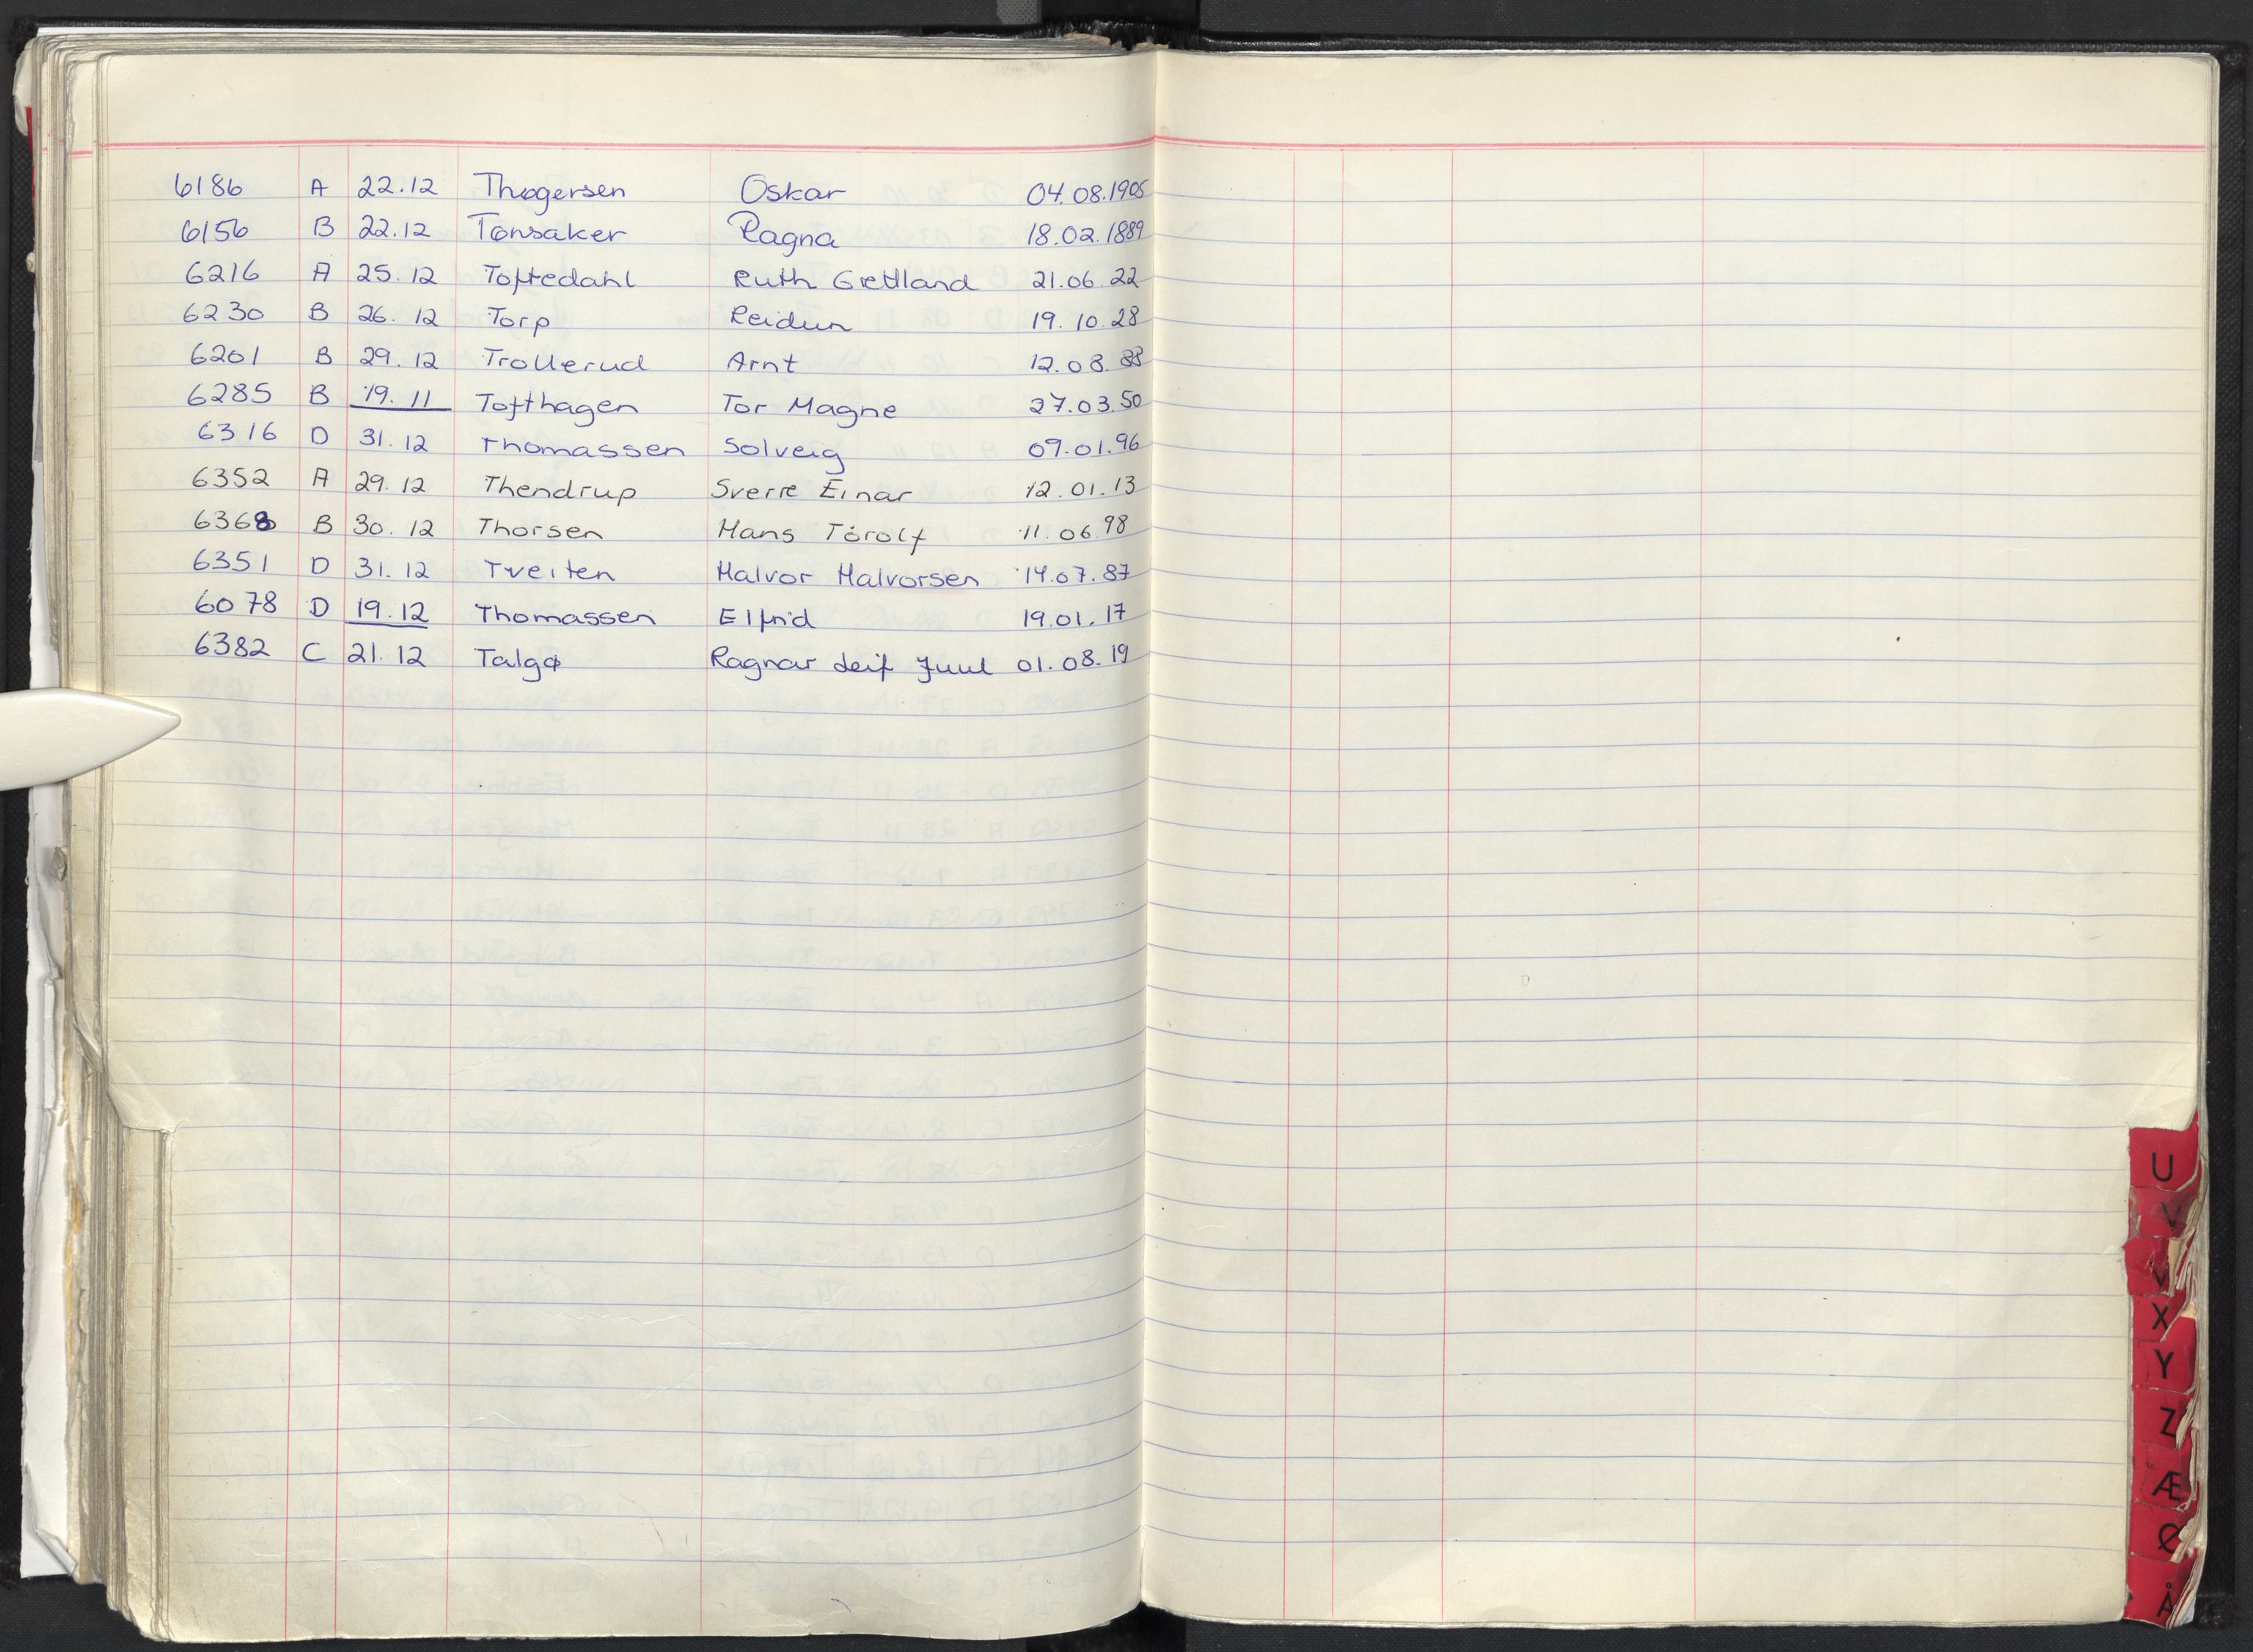 6186 A 22.12 Thøgersen Oskar 04.08.1905
6156 B 22.12 Tønsaker Ragna 18.02.1889
6216 A 25.12 Toftedahl Ruth Grettland 21.06 22
6230 B 26. 12 Torp Reidun 19. 10 28
6201 B 29. 12 Trollerud Arnt 12.08. 88
6285 B 19. 11 Tofthagen Tor Magne 27.03.50
6316 D 31. 12 Thomassen Solveig 09.01.96
6352 A 29. 12 Thendrup Sverre Einar 12.01.13
6368 B 30. 12 Thorsen Hans Torolf 11. 06 98
6351 D 31. 12 Tveiten Halvor Halvorsen 14.07.87
6078 D 19.12 Thomassen Elfrid 19.01.17
6382 C 21. 12 Talgø Ragnar Leif Juul 01.08.19
U
V
X
Y
Z
Æ
Ø
Å